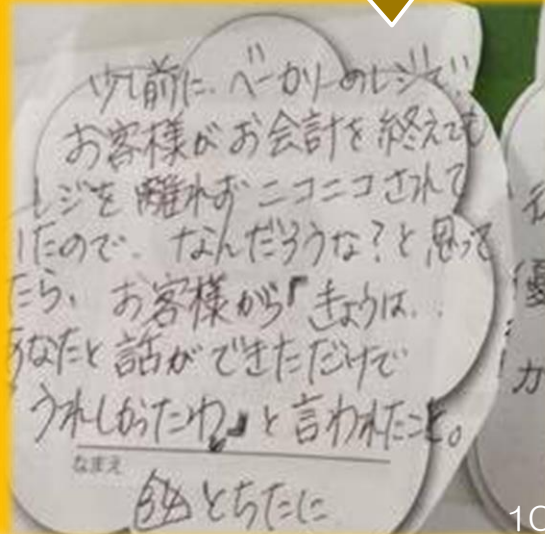 少し前に、ベーカリーのレジで
お客様がお会計を終えても
レジを離れずニコニコされて
いたので、なんだろうな?と思って
たら、お客様から『きょうは..
あなたと話ができただけで
うれしかったわ。』と言われたこと。
なまえ
とちたに
優
カ
10